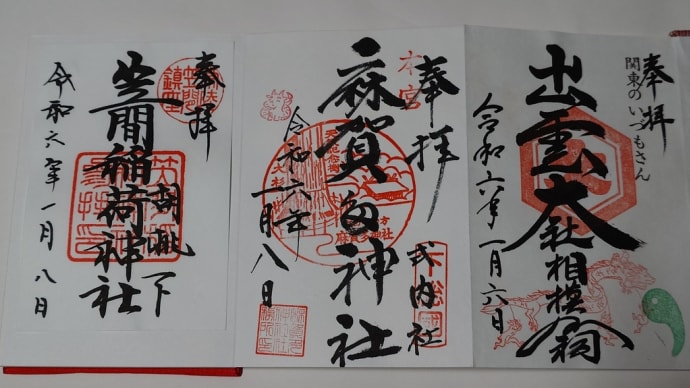 奉拝
関東のいづもさん
出雲大社相模分祠
令和六年一月六日
奉拝
本宮
麻賀多神社
式内社
令和六年
一月八日
奉拝
笠間稲荷神社
胡桃下
令和六年一月八日